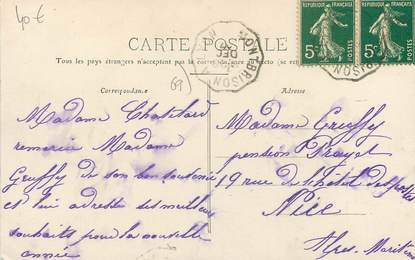 40 €
CARTE POSTALE
Tous les pays étrangers n'acceptent pas la correspondance au recto (se re
Correspondance
Adresse
MONTBRISON
DEC
MONTBRISON
RÉPUBLIQUE FRANÇAISE
5c
POSTES
RÉPUBLIQUE FRANÇAISE
5c
POSTES
69
Madame Chatelard
remercie Madame
Gruffy de son bon souvenir
et lui adresse ses meilleurs
souhaits pour la nouvelle
année
Madame Gruffy
pension
19 rue de l'hôtel des postes
Nice
Alpes-Maritimes